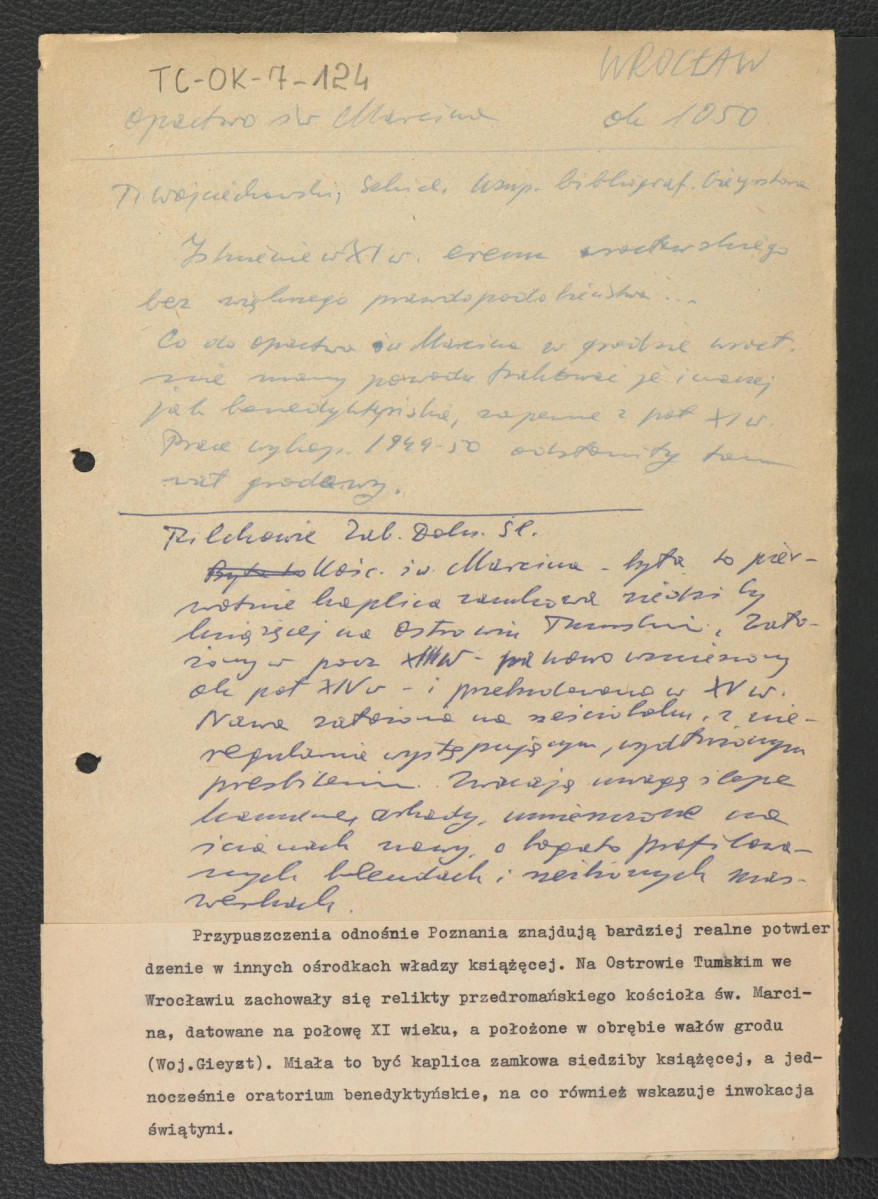 TC-OK-7-124
WROCŁAW
opactwo św Marcina ok 1050
T. Wojciechowski, Szkice. Uzup. bibliograf. Gieysztora
Istnienie w XI w. eremu wrocławskiego
bez większego prawdopodobieństwa...
Co do opactwa św Marcina w grodzie wrocł.
nie mamy powodu traktować je inaczej
jak benedyktyńskie, zapewne z poł XI w.
Prace wykop. 1949-50 odsłoniły tam
wał grodowy.
Pilchowie Zab. Doln. Śl.
Była to Kośc. św. Marcina - była to pier-
wotnie kaplica zamkowa siedziby
książęcej na Ostrowiu Tumskim, zało-
żony w pocz XIII w - na nowo wzniesiony
ok poł XIV w - i przebudowana w XV w.
Nawa założona na sześcioboku, z nie-
regularnie występującym, wydłużonym
prezbiterium. Zwracają uwagę ślepe
kamienne, arkady, umieszczone na
ścianach nawy, o bogato profilowa-
nych blendach i mas-
werkach.
Przypuszczenia odnośnie Poznania znajdują bardziej realne potwier
dzenie w innych ośrodkach władzy książęcej. Na Ostrowie Tumskim we
Wrocławiu zachowały się relikty przedromańskiego kościoła św. Marci-
na, datowane na połowę XI wieku, a położone w obrębie wałów grodu
(Woj.Gieyzt). Miała to być kaplica zamkowa siedziby książęcej, a jed-
nocześnie oratorium benedyktyńskie, na co również wskazuje inwokacja
świątyni.